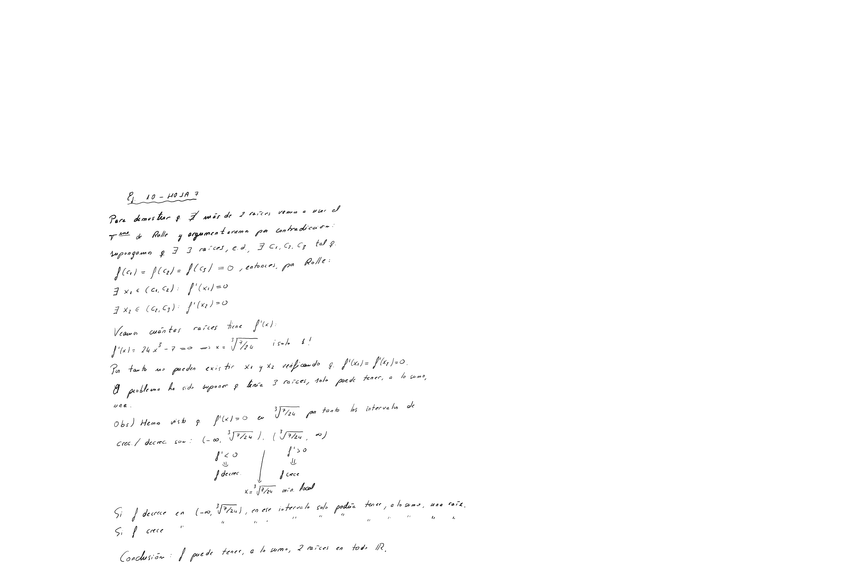 Ej 10 - HOJA 7
Para demostrar q ∄ más de 2 raíces vamos a usar el
Tma de Rolle y argumentaremos por contradicción:
supongamos q ∃ 3 raíces, e.d, ∃ c₁, c₂, c₃ tal q.
f(c₁) = f(c₂) = f(c₃) = 0, entonces, por Rolle:
∃ x₁ ∈ (c₁, c₂): f'(x₁)=0
∃ x₂ ∈ (c₂, c₃): f'(x₂)=0
Veamos cuántas raíces tiene f'(x):
f'(x) = 24x³ - 7 = 0 ⟹ x = ∛7/24 ¡solo 1!
Por tanto no pueden existir x₁ y x₂ verificando q f'(x₁) = f'(x₂) = 0.
El problema ha sido suponer q tenía 3 raíces, solo puede tener, a lo sumo,
Obs) Hemos visto q f'(x) = 0 en ∛7/24 por tanto los intervalos de
crec / decrec son: (-∞, ∛7/24), (∛7/24, ∞)
f' < 0 f' > 0
⇓ ⇓
f decrec. f crece
x = ∛7/24 min local
Si f decrece en (-∞, ∛7/24), en ese intervalo solo podría tener, a lo sumo, una raíz.
Si f crece " " " " " " " " " " "
Conclusión: f puede tener, a lo sumo, 2 raíces en todo ℝ.